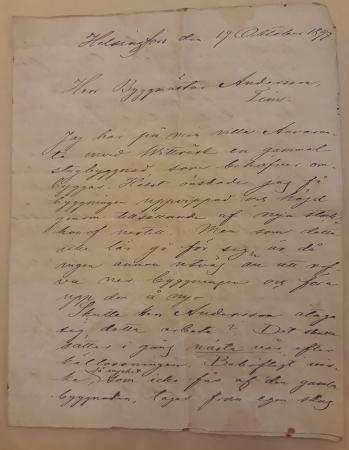 Helsingfors den 19 Oktober 1897
Herr Byggmästar Andersson,
Jag har på min villa
vid Witträsk en gammal
byggnad, som behöfver om-
byggas. Helst önskade jag få
byggningen uppvippad och höjd
genom tillsättande af nya stock-
hvarf nertill. Men som detta
icke lär gå för sig, är då
ingen annan utväg än att rif-
va ner byggningen och föra
upp den å ny.
Skulle herr Andersson åtaga
sig detta arbete? Det skulle
sättas i gång nästa vår efter
Behöfligt vir-
ke, så mycket som icke fås af den gamla
byggnaden, tages från egen skog